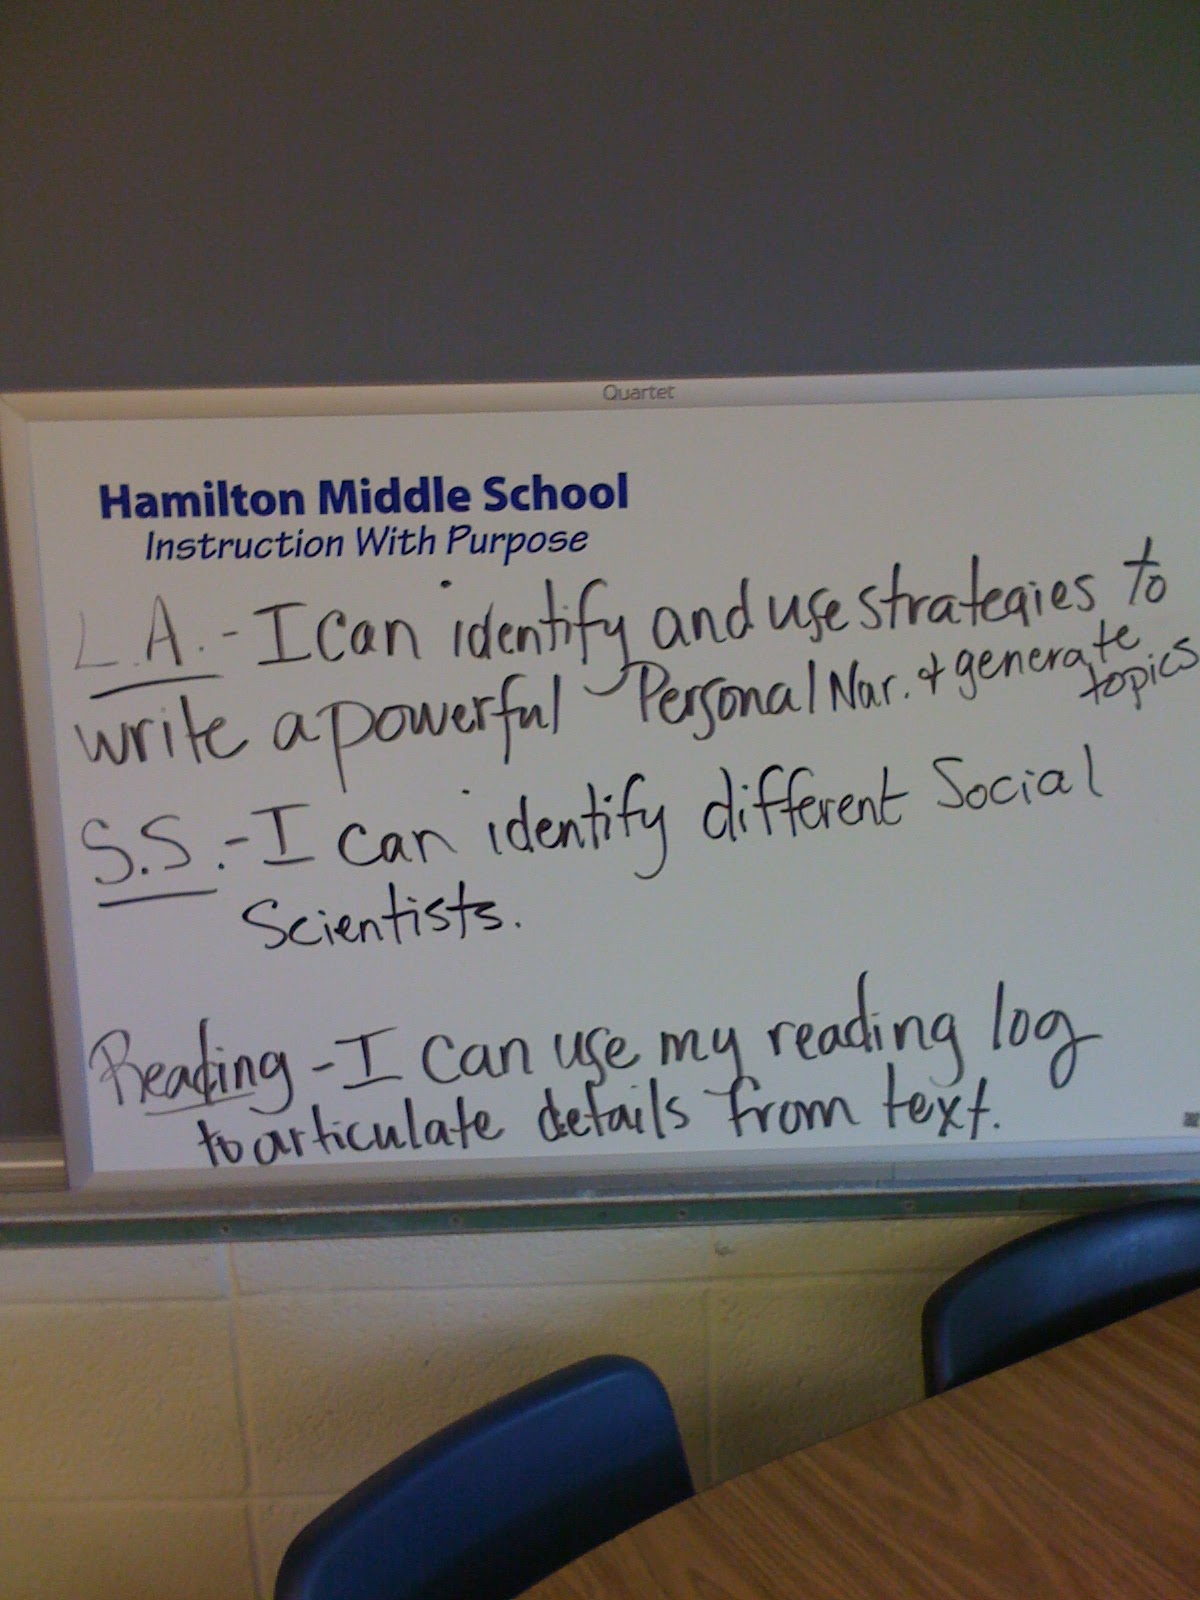 Quartet
Hamilton Middle School
Instruction With Purpose
L.A. - I can identify and use strategies to
write a powerful Personal Nar. + generate
topics
S.S. - I can identify different Social
Scientists.
Reading - I can use my reading log
to articulate details from text.